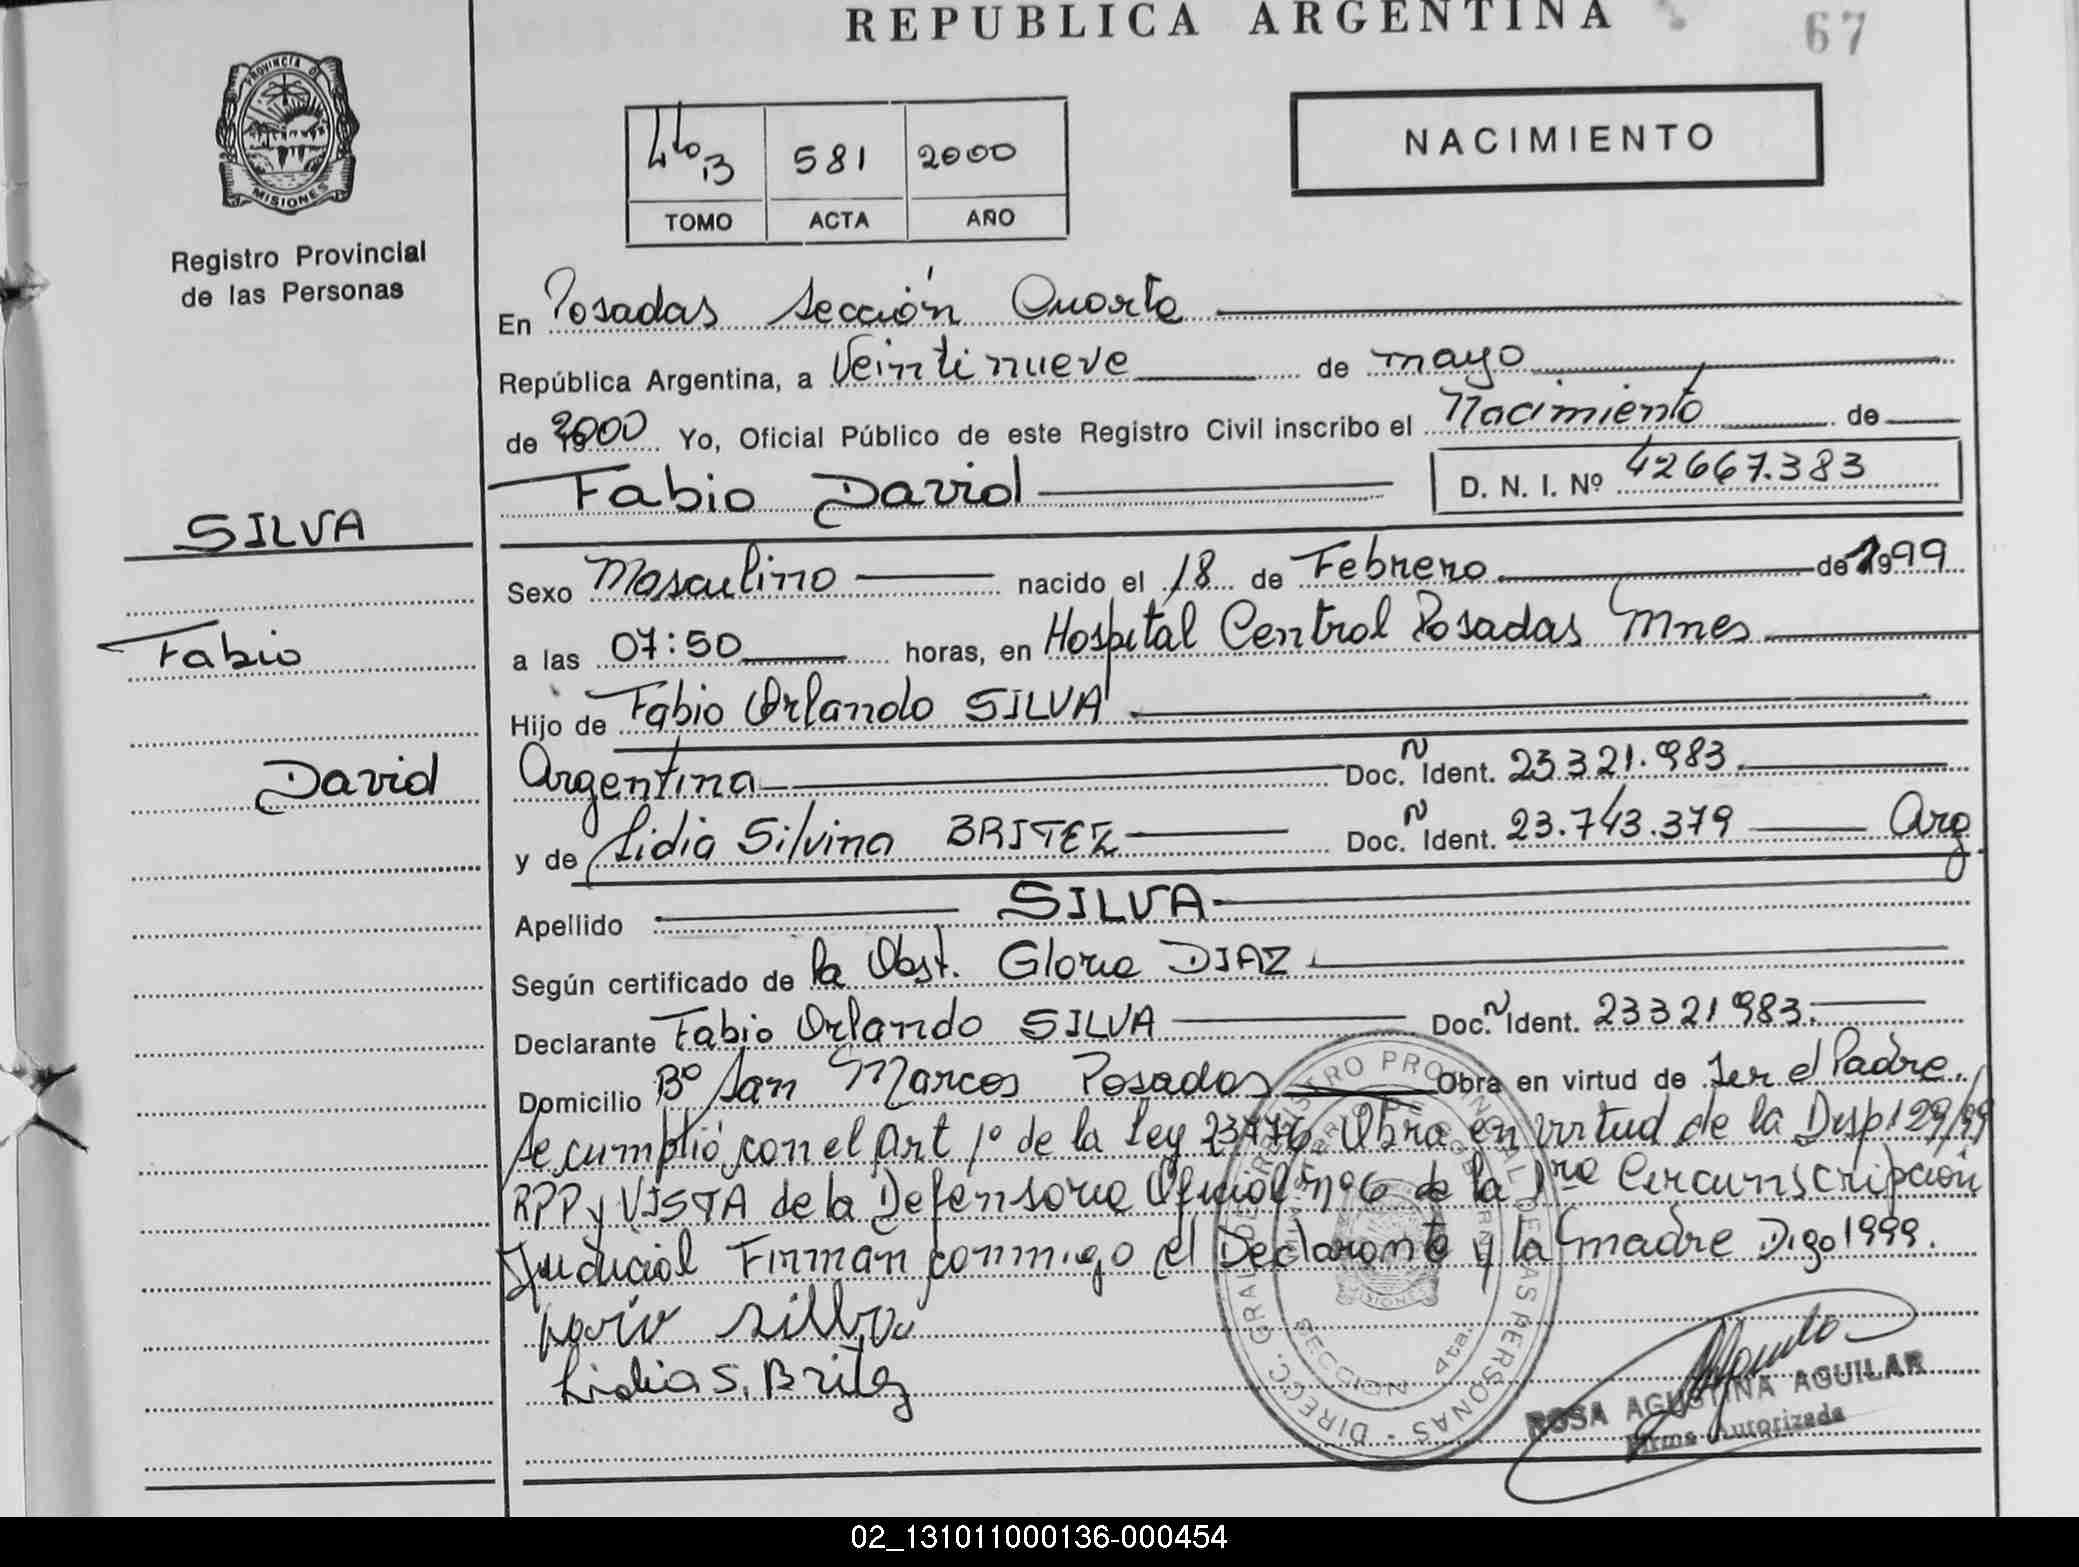 REPUBLICA ARGENTINA
67
PROVINCIA DE
MISIONES
Registro Provincial
de las Personas
581 2000
TOMO ACTA AÑO
NACIMIENTO
En Posadas Sección Cuarta
República Argentina, a Veintinueve de mayo
de 2000 Yo, Oficial Público de este Registro Civil inscribo el Nacimiento de
Fabio David D. N. I. Nº 42667.383
SILVA
Fabio
David
Sexo Masculino nacido el 18 de Febrero de 1999
a las 07:50 horas, en Hospital Central Posadas Mnes
Hijo de Fabio Orlando SILVA
Argentina Doc. Ident. 23321.983
y de Lidia Silvina BRITEZ Doc. Ident. 23.743.379 Arg
Apellido SILVA
Según certificado de la Obst. Gloria DIAZ
Declarante Fabio Orlando SILVA Doc. Ident. 23321983
Domicilio Bº San Marcos Posadas Obra en virtud de Ser el Padre.
Se cumplió con el Art 1º de la Ley 23776 Obra en virtud de la Disp 129/99
RPP y VISTA de la Defensoria Oficial nº6 de la 1ra Circunscripción
Judicial Firman conmigo el Declarante y la madre Digo 1999.
Lidia S. Britez
DIRECC. GRAL DE REGISTRO PROVINCIAL DE LAS PERSONAS
SECCION 4ta.
MISIONES
ROSA AGUSTINA AGUILAR
Firma Autorizada
02_131011000136-000454